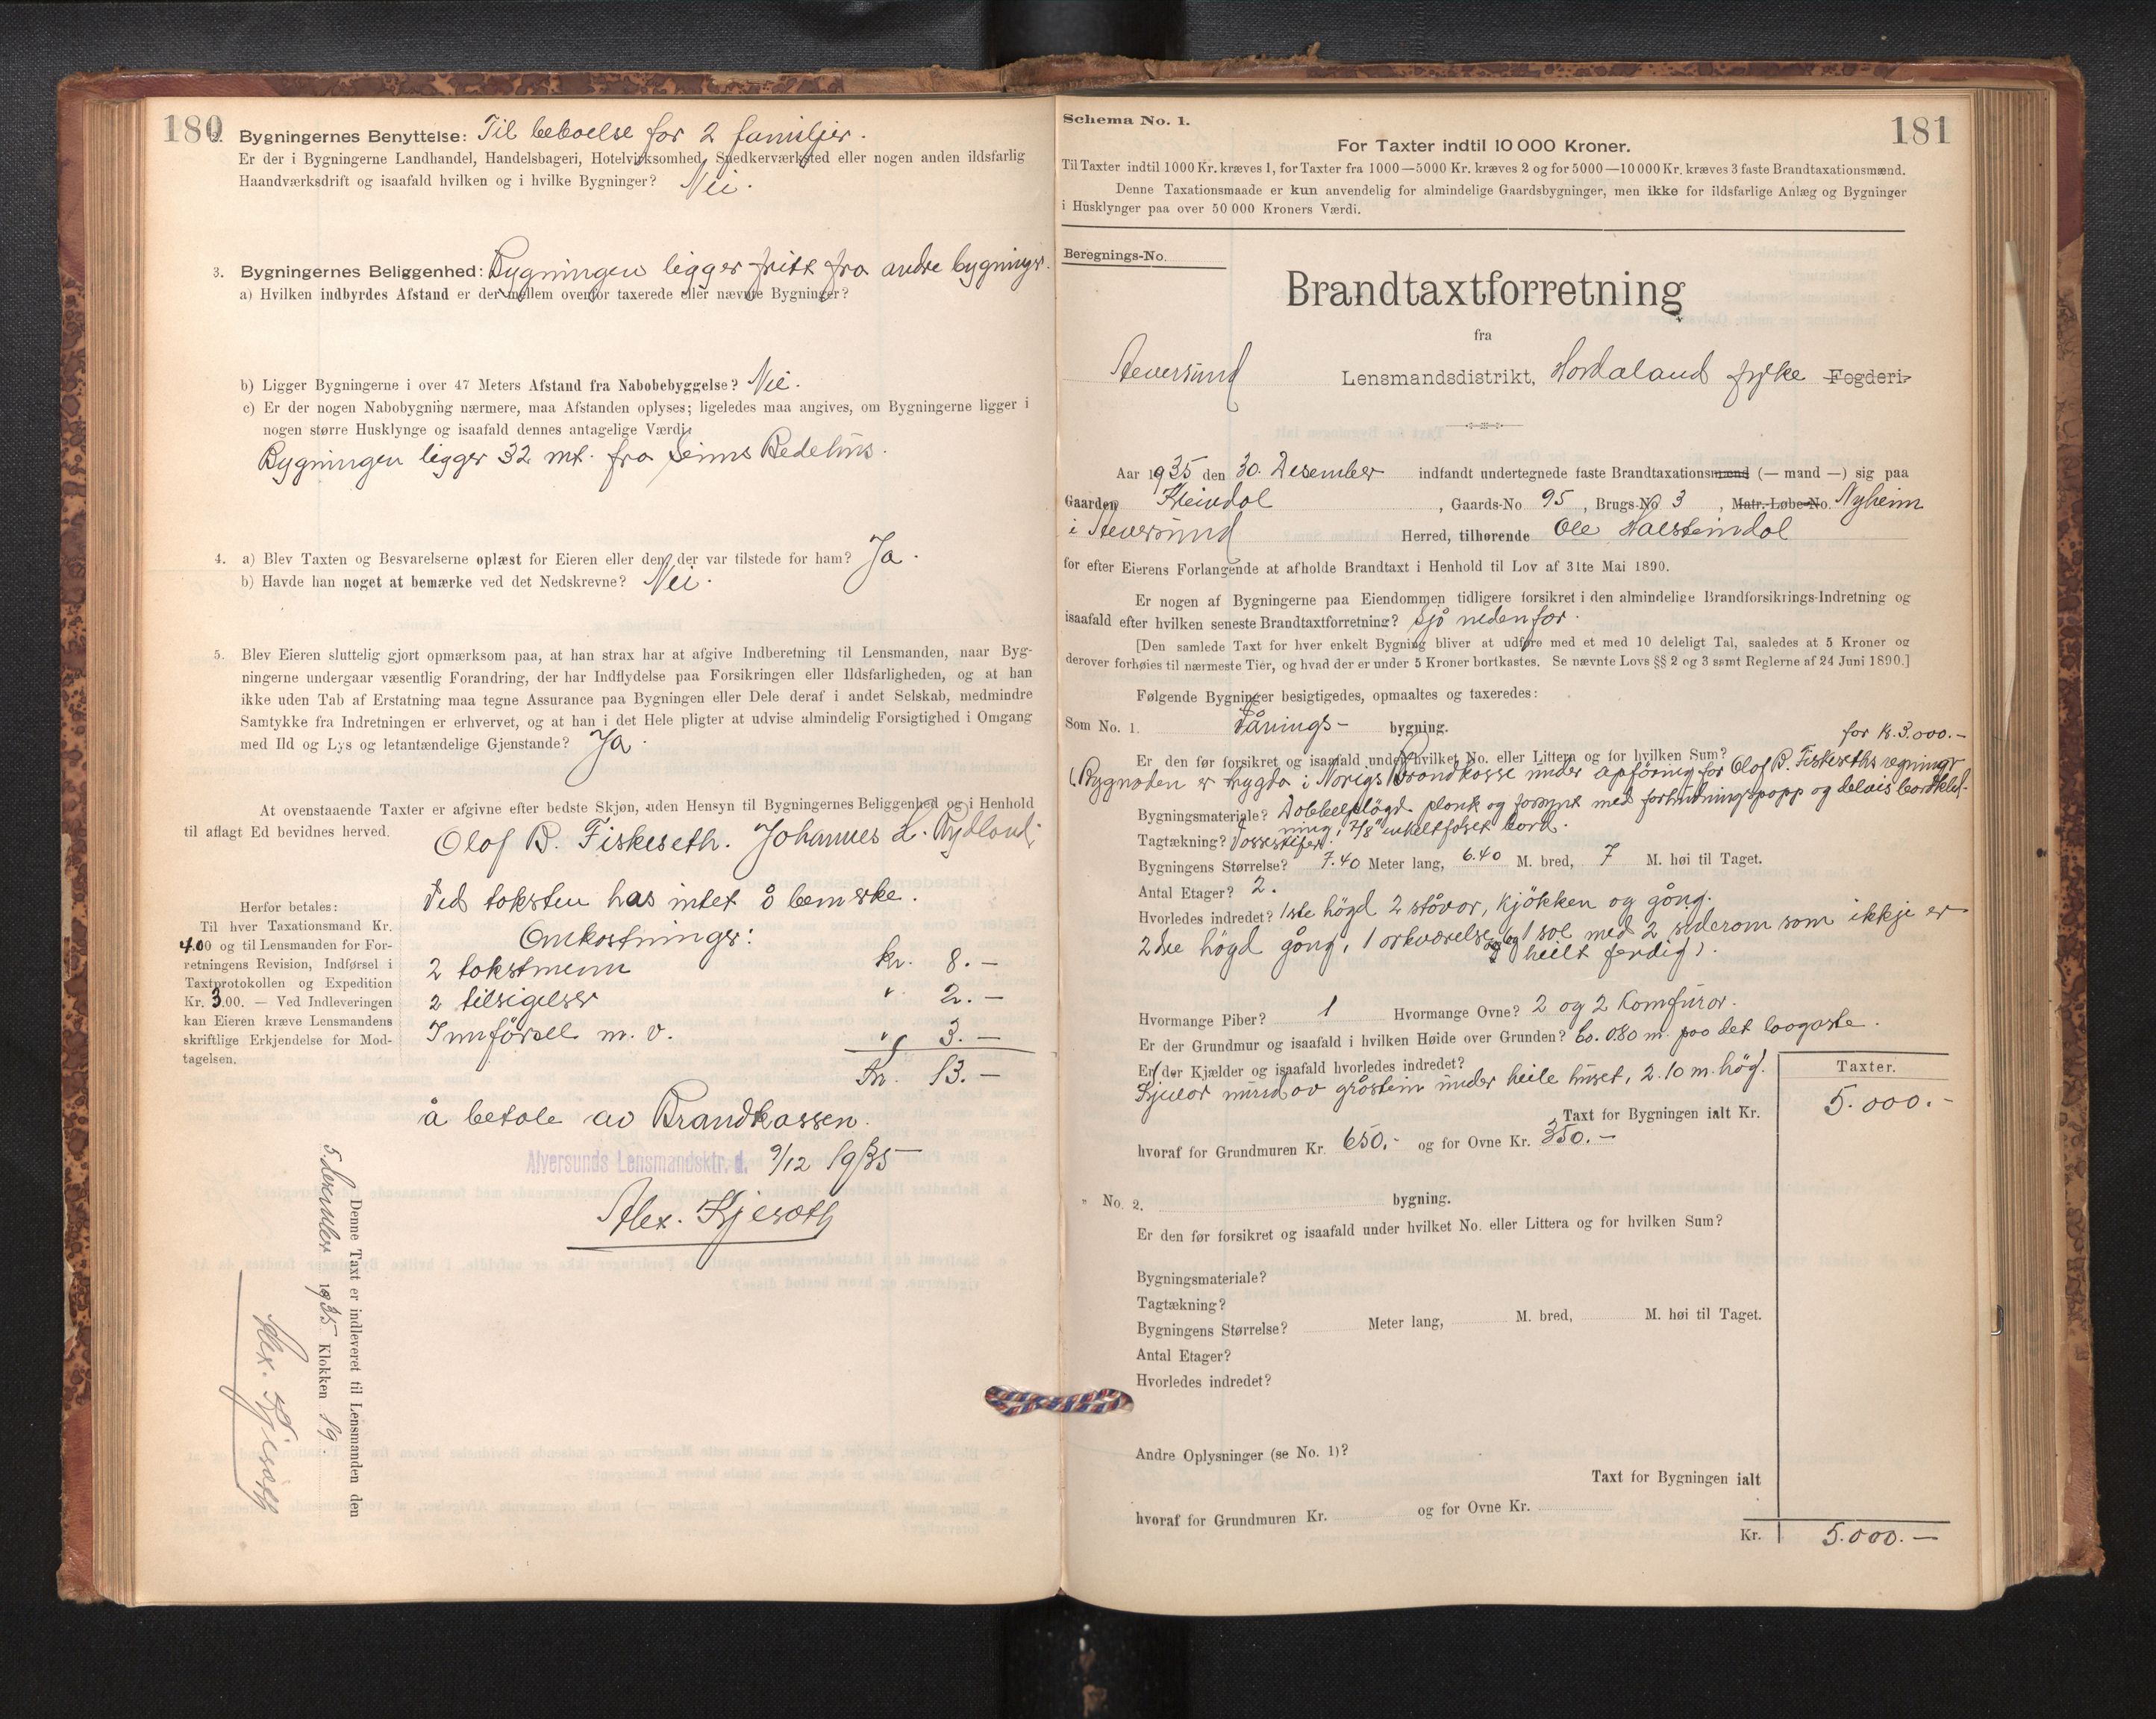 180
2. Bygningernes Benyttelse: Til beboelse for 2 familjer.
Er der i Bygningerne Landhandel, Handelsbageri, Hotelvirksomhed, Snedkerværksted eller nogen anden ildsfarlig
Haandværksdrift og isaafald hvilken og i hvilke Bygninger? Nei.
3. Bygningernes Beliggenhed: Bygningen ligger fritt fra andre bygninger.
a) Hvilken indbyrdes Afstand er der mellem ovenfor taxerede eller nævnte Bygninger?
b) Ligger Bygningerne i over 47 Meters Afstand fra Nabobebyggelse? Nei.
c) Er der nogen Nabobygning nærmere, maa Afstanden oplyses; ligeledes maa angives, om Bygningerne ligger i
nogen større Husklynge og isaafald dennes antagelige Værdi.
Bygningen ligger 32 mt. fra Seims Bedehus.
4. a) Blev Taxten og Besvarelserne oplæst for Eieren eller den, der var tilstede for ham? Ja.
b) Havde han noget at bemærke ved det Nedskrevne? Nei.
5. Blev Eieren sluttelig gjort opmærksom paa, at han strax har at afgive Indberetning til Lensmanden, naar Byg-
ningerne undergaar væsentlig Forandring, der har Indflydelse paa Forsikringen eller Ildsfarligheden, og at han
ikke uden Tab af Erstatning maa tegne Assurance paa Bygningen eller Dele deraf i andet Selskab, medmindre
Samtykke fra Indretningen er erhvervet, og at han i det Hele pligter at udvise almindelig Forsigtighed i Omgang
med Ild og Lys og letantændelige Gjenstande? Ja.
At ovenstaaende Taxter er afgivne efter bedste Skjøn, uden Hensyn til Bygningernes Beliggenhed og i Henhold
til aflagt Ed bevidnes herved.
Olaf B. Fiskeseth. Johannes L. Rydland.
Ved taksten has intet å bemerke.
Omkostninger:
2 takstmenn kr. 8.-
2 tilsigelser " 2.-
Innförsel m. v. " 3.-
Kr. 13.-
å betale av Brandkassen.
Alversunds Lensmandsktr. d. 9/12 1935
Alex. Kjesæth
Herfor betales:
Til hver Taxationsmand Kr.
4.00 og til Lensmanden for For-
retningens Revision, Indførsel i
Taxtprotokollen og Expedition
Kr. 3.00. — Ved Indleveringen
kan Eieren kræve Lensmandens
skriftlige Erkjendelse for Mod-
tagelsen.
Denne Taxt er indleveret til Lensmanden den
5. desember 1935 Klokken 19.
Alex. Kjesæth
181
Schema No. 1.
For Taxter indtil 10 000 Kroner.
Til Taxter indtil 1000 Kr. kræves 1, for Taxter fra 1000—5000 Kr. kræves 2 og for 5000—10 000 Kr. kræves 3 faste Brandtaxationsmænd.
Denne Taxationsmaade er kun anvendelig for almindelige Gaardsbygninger, men ikke for ildsfarlige Anlæg og Bygninger
i Husklynger paa over 50 000 Kroners Værdi.
Beregnings-No.
Brandtaxtforretning
fra
Alversund Lensmandsdistrikt, Hordaland fylke Fogderi.
Aar 1935 den 30. Desember indfandt undertegnede faste Brandtaxationsmænd (— mand —) sig paa
Gaarden Kleivdal, Gaards-No 95, Brugs-No 3, Matr.-Løbe-No. Nyheim
i Alversund Herred, tilhørende Ole Halsteindal
for efter Eierens Forlangende at afholde Brandtaxt i Henhold til Lov af 31te Mai 1890.
Er nogen af Bygningerne paa Eiendommen tidligere forsikret i den almindelige Brandforsikrings-Indretning og
isaafald efter hvilken seneste Brandtaxtforretning? Sjå nedenfor.
[Den samlede Taxt for hver enkelt Bygning bliver at udføre med et med 10 deleligt Tal, saaledes at 5 Kroner og
derover forhøies til nærmeste Tier, og hvad der er under 5 Kroner bortkastes. Se nævnte Lovs §§ 2 og 3 samt Reglerne af 24 Juni 1890.]
Følgende Bygninger besigtigedes, opmaaltes og taxeredes:
Som No. 1. Vånings- bygning.
for kr. 3.000.-
Er den før forsikret og isaafald under hvilket No. eller Littera og for hvilken Sum?
Bygnaden er trygda i Noregs Brandkasse under opföring for Olaf B. Fiskeseths regning
Bygningsmateriale? Dobbeltplögd plank og forsynt med forhudningspapp og delvis bordkled-
ning, 7/8" enkeltfalset bord.
Tagtækning? Vosseskifer.
Bygningens Størrelse? 7.40 Meter lang, 6.40 M. bred, 7 M. høi til Taget.
Antal Etager? 2.
Hvorledes indredet? 1ste högd 2 stövor, kjökken og gång.
2dre högd gång, 1 arkværelse og 1 sal med 2 siderom som ikkje er
heilt ferdig).
Hvormange Piber? 1 Hvormange Ovne? 2 og 2 Komfurar.
Er der Grundmur og isaafald i hvilken Høide over Grunden? Ca. 0.80 m. paa det laagaste.
Er der Kjælder og isaafald hvorledes indredet?
Kjellar murd av gråstein under heile huset, 2.10 m. hög.
Taxter.
Taxt for Bygningen ialt Kr. 5.000.-
hvoraf for Grundmuren Kr. 650.- og for Ovne Kr. 350.-
" No. 2. bygning.
Er den før forsikret og isaafald under hvilket No. eller Littera og for hvilken Sum?
Bygningsmateriale?
Tagtækning?
Bygningens Størrelse? Meter lang, M. bred, M. høi til Taget.
Antal Etager?
Hvorledes indredet?
Andre Oplysninger (se No. 1)?
Taxt for Bygningen ialt
hvoraf for Grundmuren Kr. og for Ovne Kr.
Kr. 5.000.-